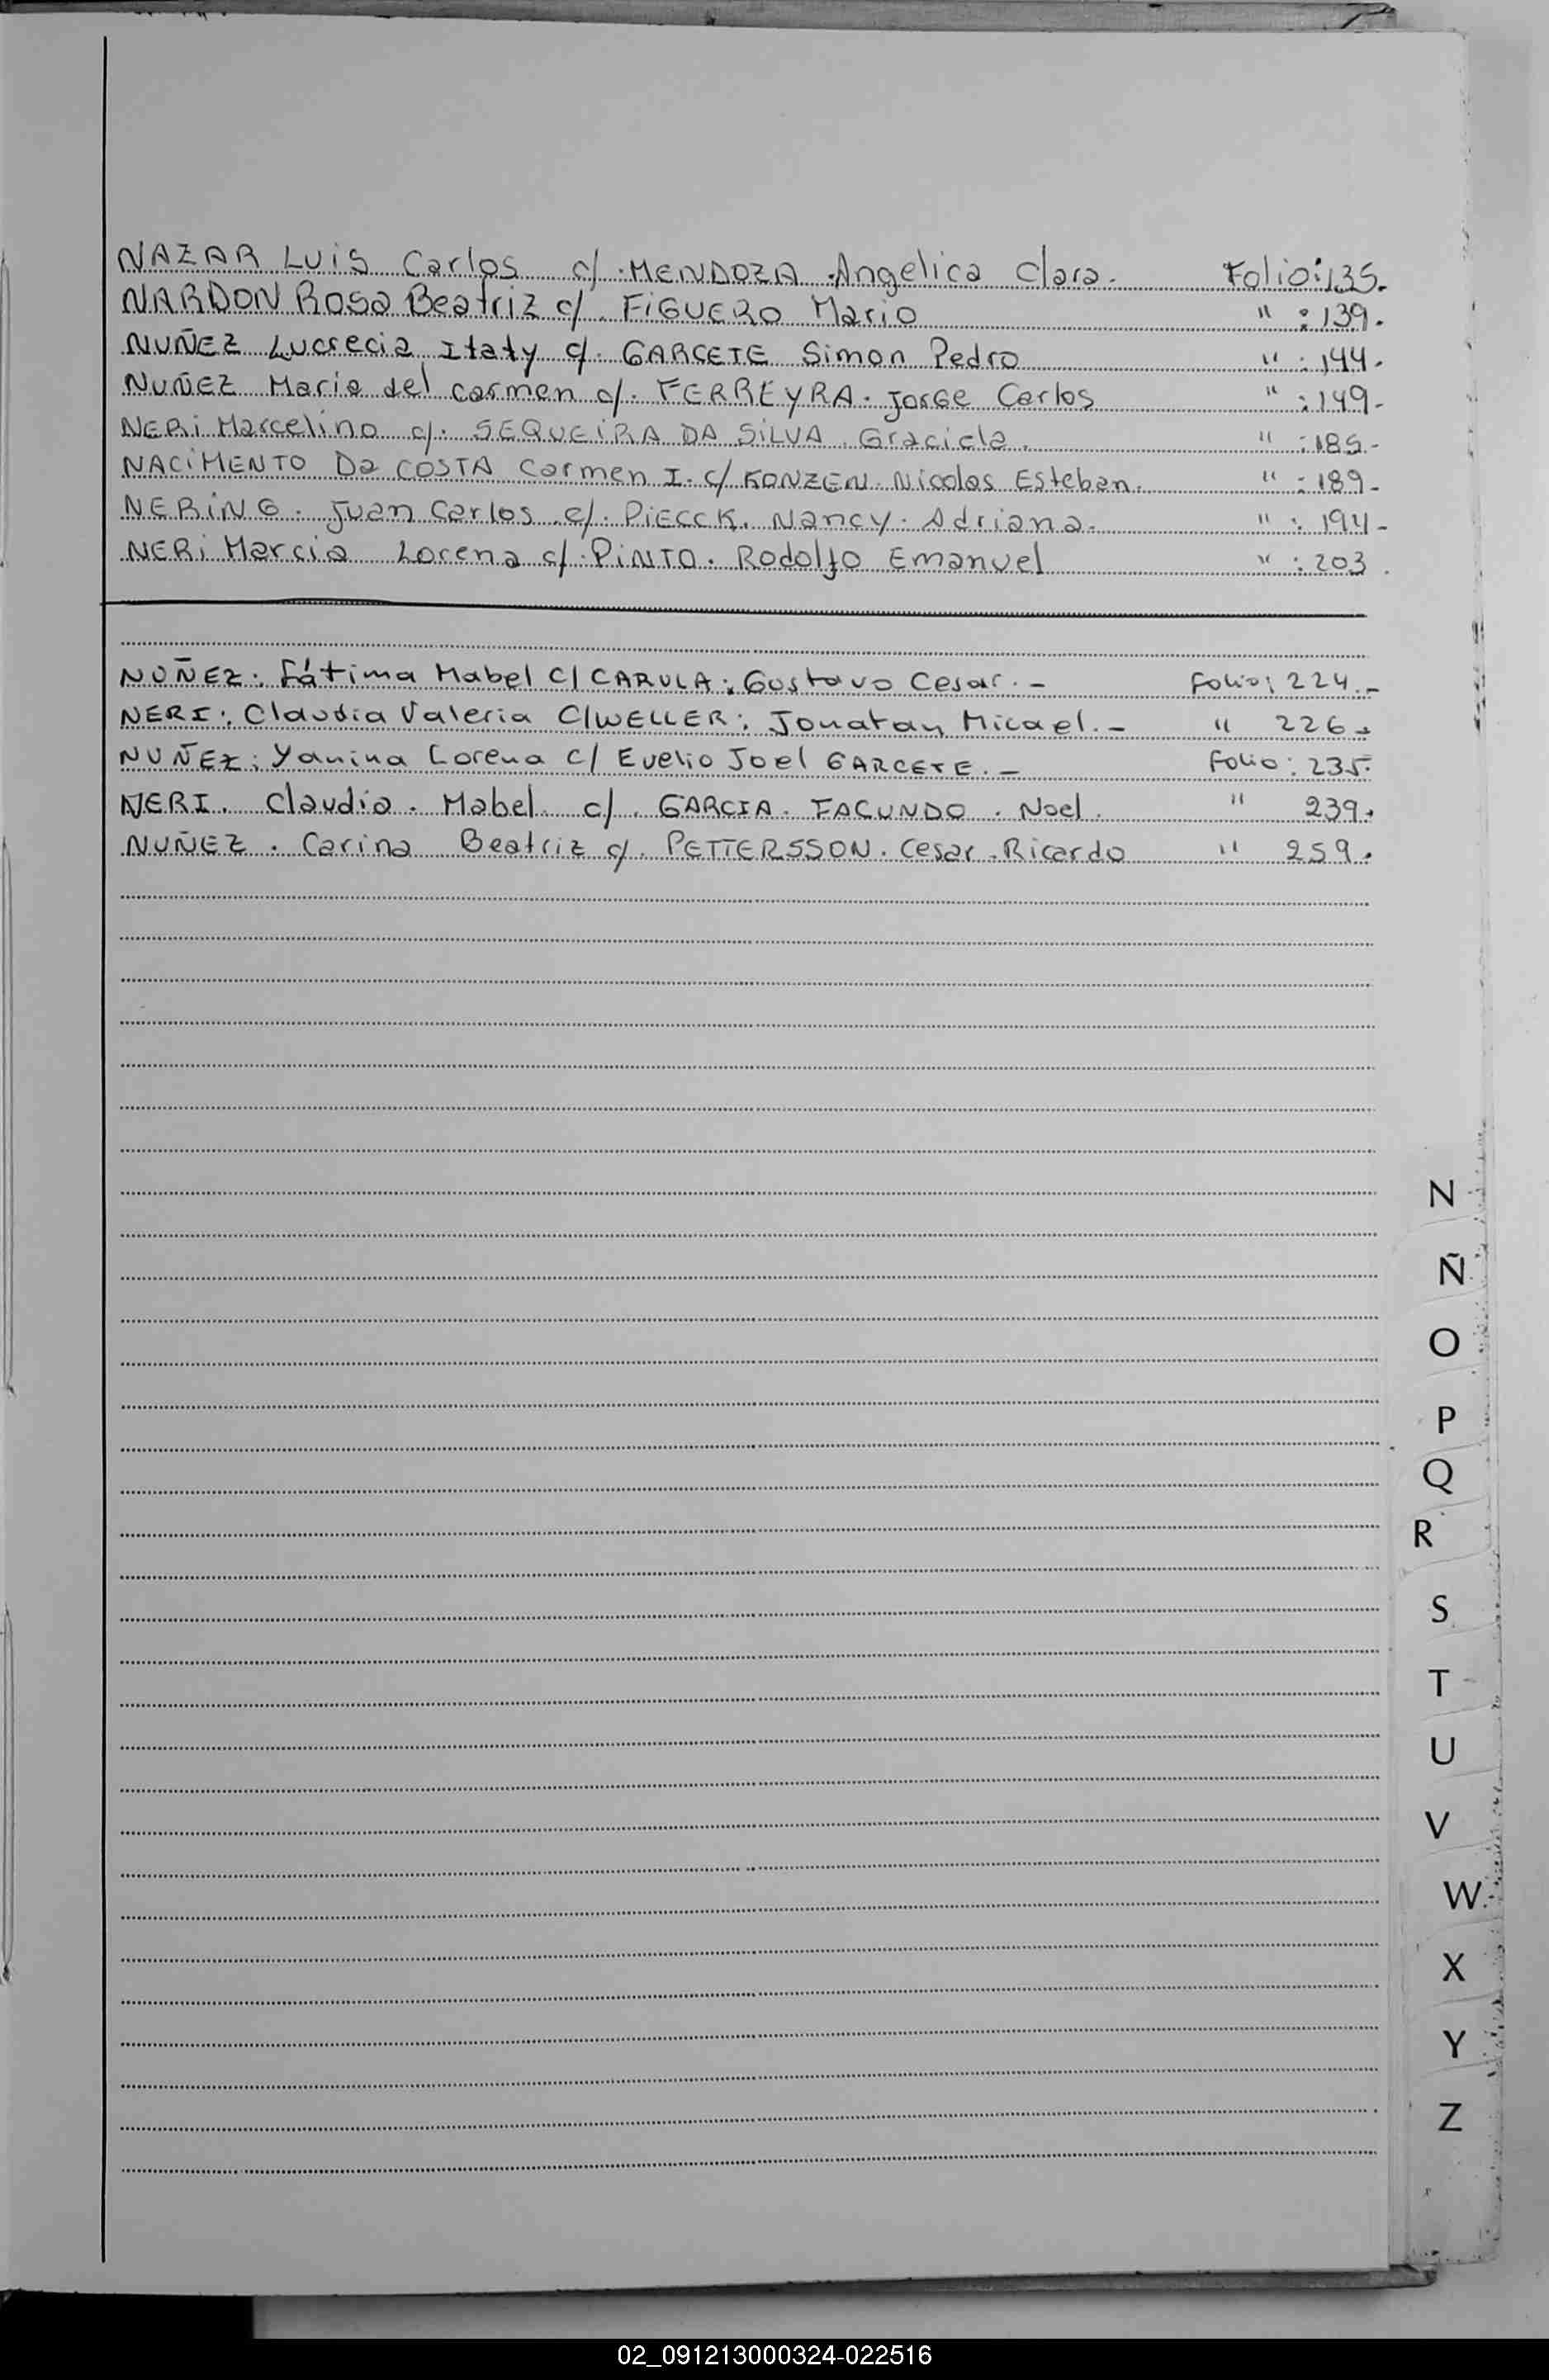 NAZAR LUIS Carlos c/. MENDOZA. Angelica Clara. Folio: 135.
NARDON ROSA Beatriz c/. FIGUERO Mario " : 139.
NUÑEZ Lucrecia Itaty c/. GARCETE Simon Pedro " : 144.
NUÑEZ Maria del carmen c/. FERREYRA. Jorge Carlos " : 149-
NERI Marcelino c/. SEQUEIRA DA SILVA. Graciela. " : 185-
NACIMENTO Da COSTA Carmen I. c/ KONZEN. Nicolas Esteban. " : 189-
NERING. Juan Carlos c/. PIECCK. Nancy. Adriana. " : 194-
NERI Marcia Lorena c/. PINTO. Rodolfo Emanuel " : 203.
NUÑEZ: Fátima Mabel C/ CARULA: Gustavo Cesar.- Folio: 224.-
NERI: Claudia Valeria C/WELLER: Jonatan Micael.- " 226.
NUÑEZ: Yanina Lorena C/ Evelio Joel GARCETE.- Folio: 235.
NERI. Claudia. Mabel. c/. GARCIA. FACUNDO. Noel. " 239.
NUÑEZ. Carina Beatriz c/. PETTERSSON. Cesar. Ricardo " 259.
N
Ñ
O
P
Q
R
S
T
U
V
W
X
Y
Z
02_091213000324-022516